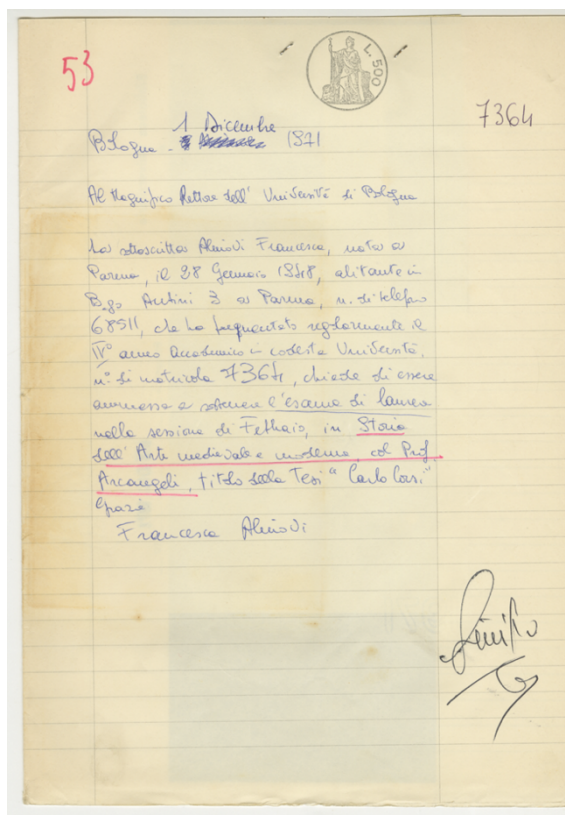 53
L. 500
7364
1 Dicembre
Bologna - 1971
Al Magnifico Rettore dell' Università di Bologna
La sottoscritta Alinovi Francesca, nata a
Parma, il 28 Gennaio 1948, abitante in
B.go Antini 3 a Parma, n. di telefono
68511, che ha frequentato regolarmente il
IV° anno accademico in codesta Università,
n° di matricola 7364, chiede di essere
ammessa a sostenere l'esame di laurea
nella sessione di Febbraio, in Storia
dell' Arte medievale e moderna, col Prof.
Arcangeli, titolo della Tesi "Carlo Corsi"
Grazie
Francesca Alinovi